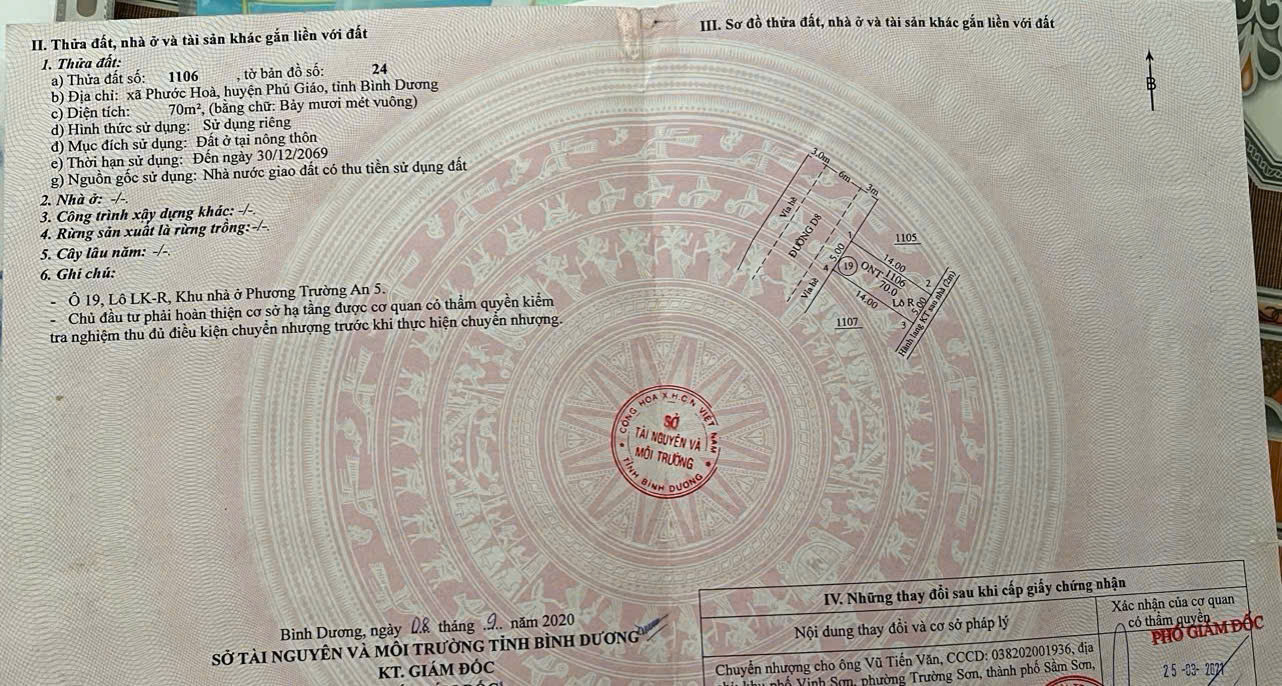 II. Thửa đất, nhà ở và tài sản khác gắn liền với đất
1. Thửa đất:
a) Thửa đất số: 1106 , tờ bản đồ số: 24
b) Địa chỉ: xã Phước Hoà, huyện Phú Giáo, tỉnh Bình Dương
c) Diện tích: 70m², (bằng chữ: Bảy mươi mét vuông)
d) Hình thức sử dụng: Sử dụng riêng
đ) Mục đích sử dụng: Đất ở tại nông thôn
e) Thời hạn sử dụng: Đến ngày 30/12/2069
g) Nguồn gốc sử dụng: Nhà nước giao đất có thu tiền sử dụng đất
2. Nhà ở: -/-.
3. Công trình xây dựng khác: -/-.
4. Rừng sản xuất là rừng trồng: -/-.
5. Cây lâu năm: -/-.
6. Ghi chú:
- Ô 19, Lô LK-R, Khu nhà ở Phương Trường An 5.
- Chủ đầu tư phải hoàn thiện cơ sở hạ tầng được cơ quan có thẩm quyền kiểm
tra nghiệm thu đủ điều kiện chuyển nhượng trước khi thực hiện chuyển nhượng.
Bình Dương, ngày 08 tháng .9.. năm 2020
SỞ TÀI NGUYÊN VÀ MÔI TRƯỜNG TỈNH BÌNH DƯƠNG
KT. GIÁM ĐỐC
CỘNG HÒA X.H.C.N VIỆT NAM
SỞ
TÀI NGUYÊN VÀ
MÔI TRƯỜNG
TỈNH BÌNH DƯƠNG
III. Sơ đồ thửa đất, nhà ở và tài sản khác gắn liền với đất
B
3.0m
6m
3m
Vỉa hè
ĐƯỜNG D8
Vỉa hè
1105
1
5.00
14.00
4
19
ONT-1106
70.0
2
14.00
Lô R
5.00
3
1107
Hành lang KT sau nhà (2m)
IV. Những thay đổi sau khi cấp giấy chứng nhận
Nội dung thay đổi và cơ sở pháp lý
Xác nhận của cơ quan
có thẩm quyền
Chuyển nhượng cho ông Vũ Tiến Văn, CCCD: 038202001936, địa
khu phố Vinh Sơn, phường Trường Sơn, thành phố Sầm Sơn,
PHÓ GIÁM ĐỐC
25 -03- 2021